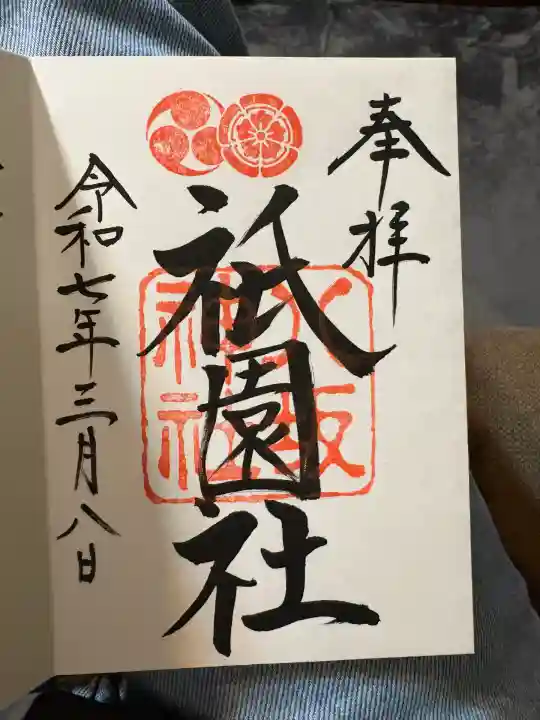 奉拝
八坂
神社
祇園社
令和七年三月八日